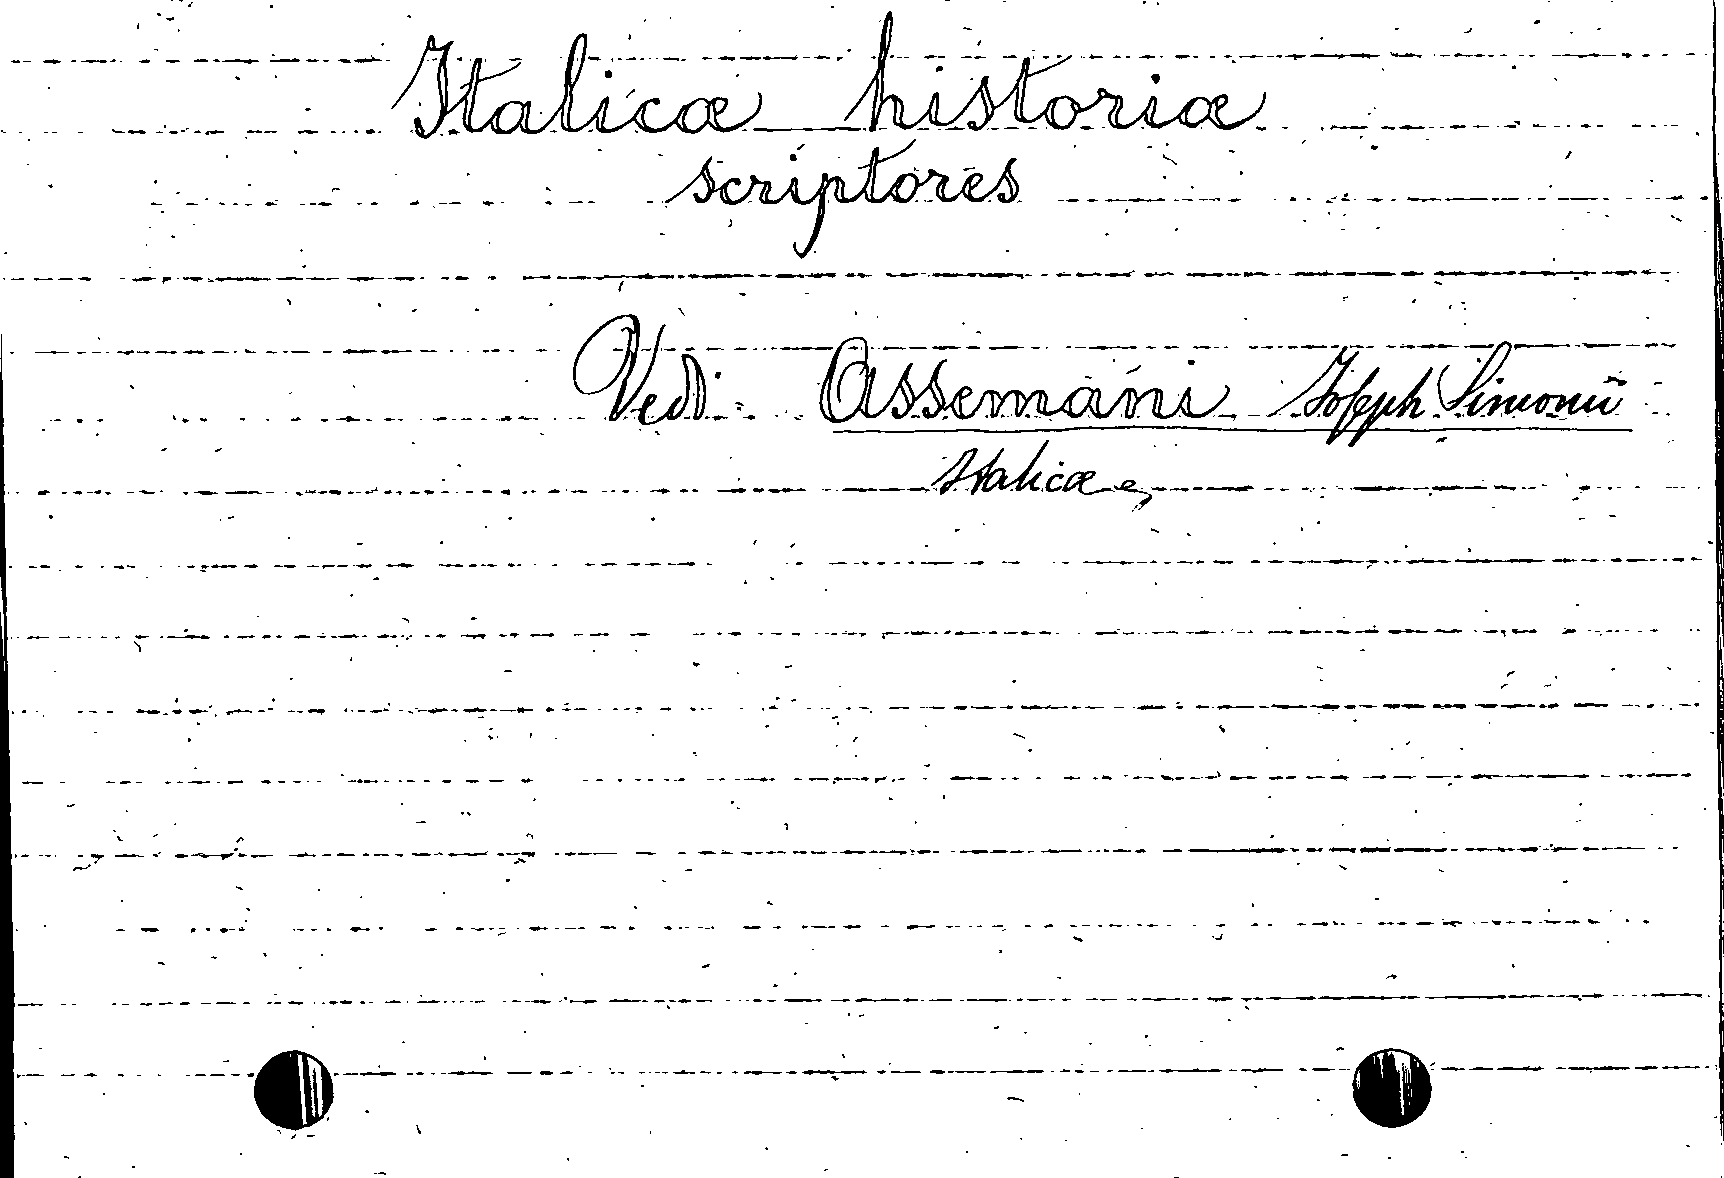 Italicæ historiæ
scriptores
Vedi Assemani Joseph Simonii
Italicæ